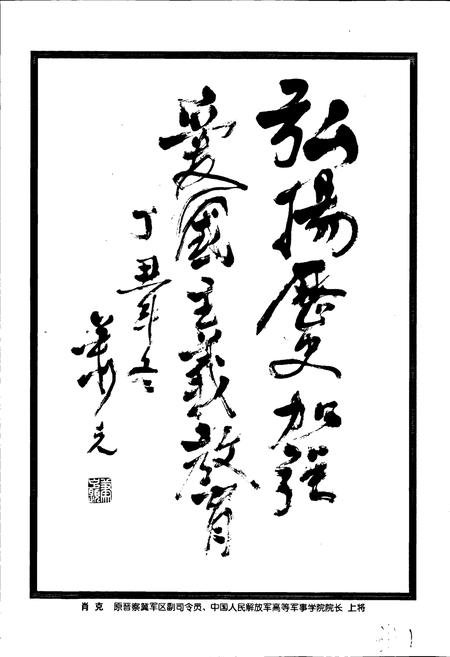 弘揚歷史加强
愛國主義教育
丁丑年冬
蕭克
肖 克 原晋察冀军区副司令员、中国人民解放军高等军事学院院长 上将